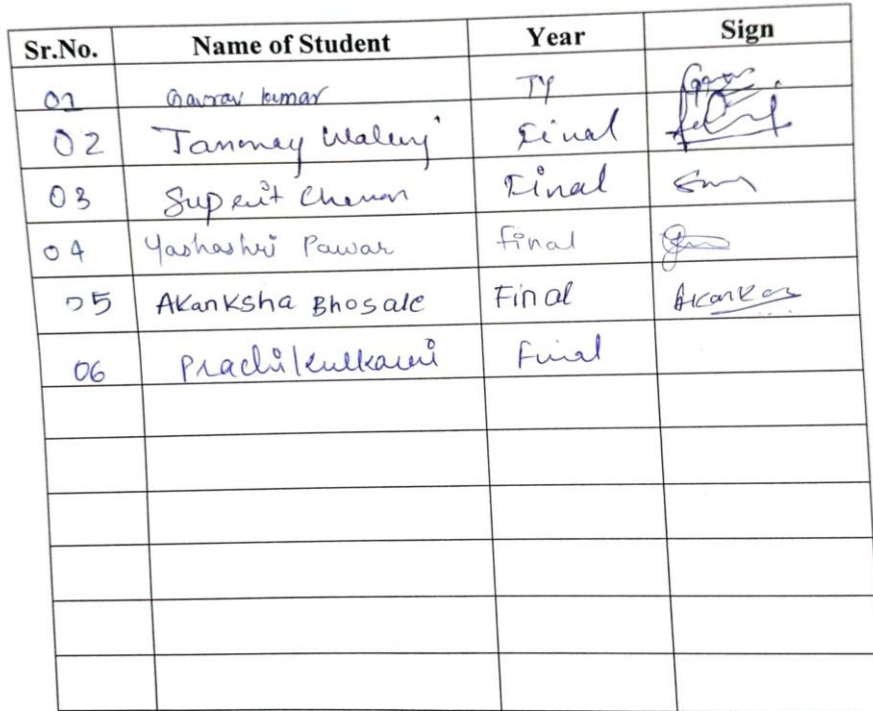 Sr.No. Name of Student Year Sign
01 Gaurav kumar TY
02 Tanmay Final
03 Suprit Chavan Final
04 Yashashri Pawar final
05 Akanksha Bhosale Final
06 Prachi Kulkarni Final